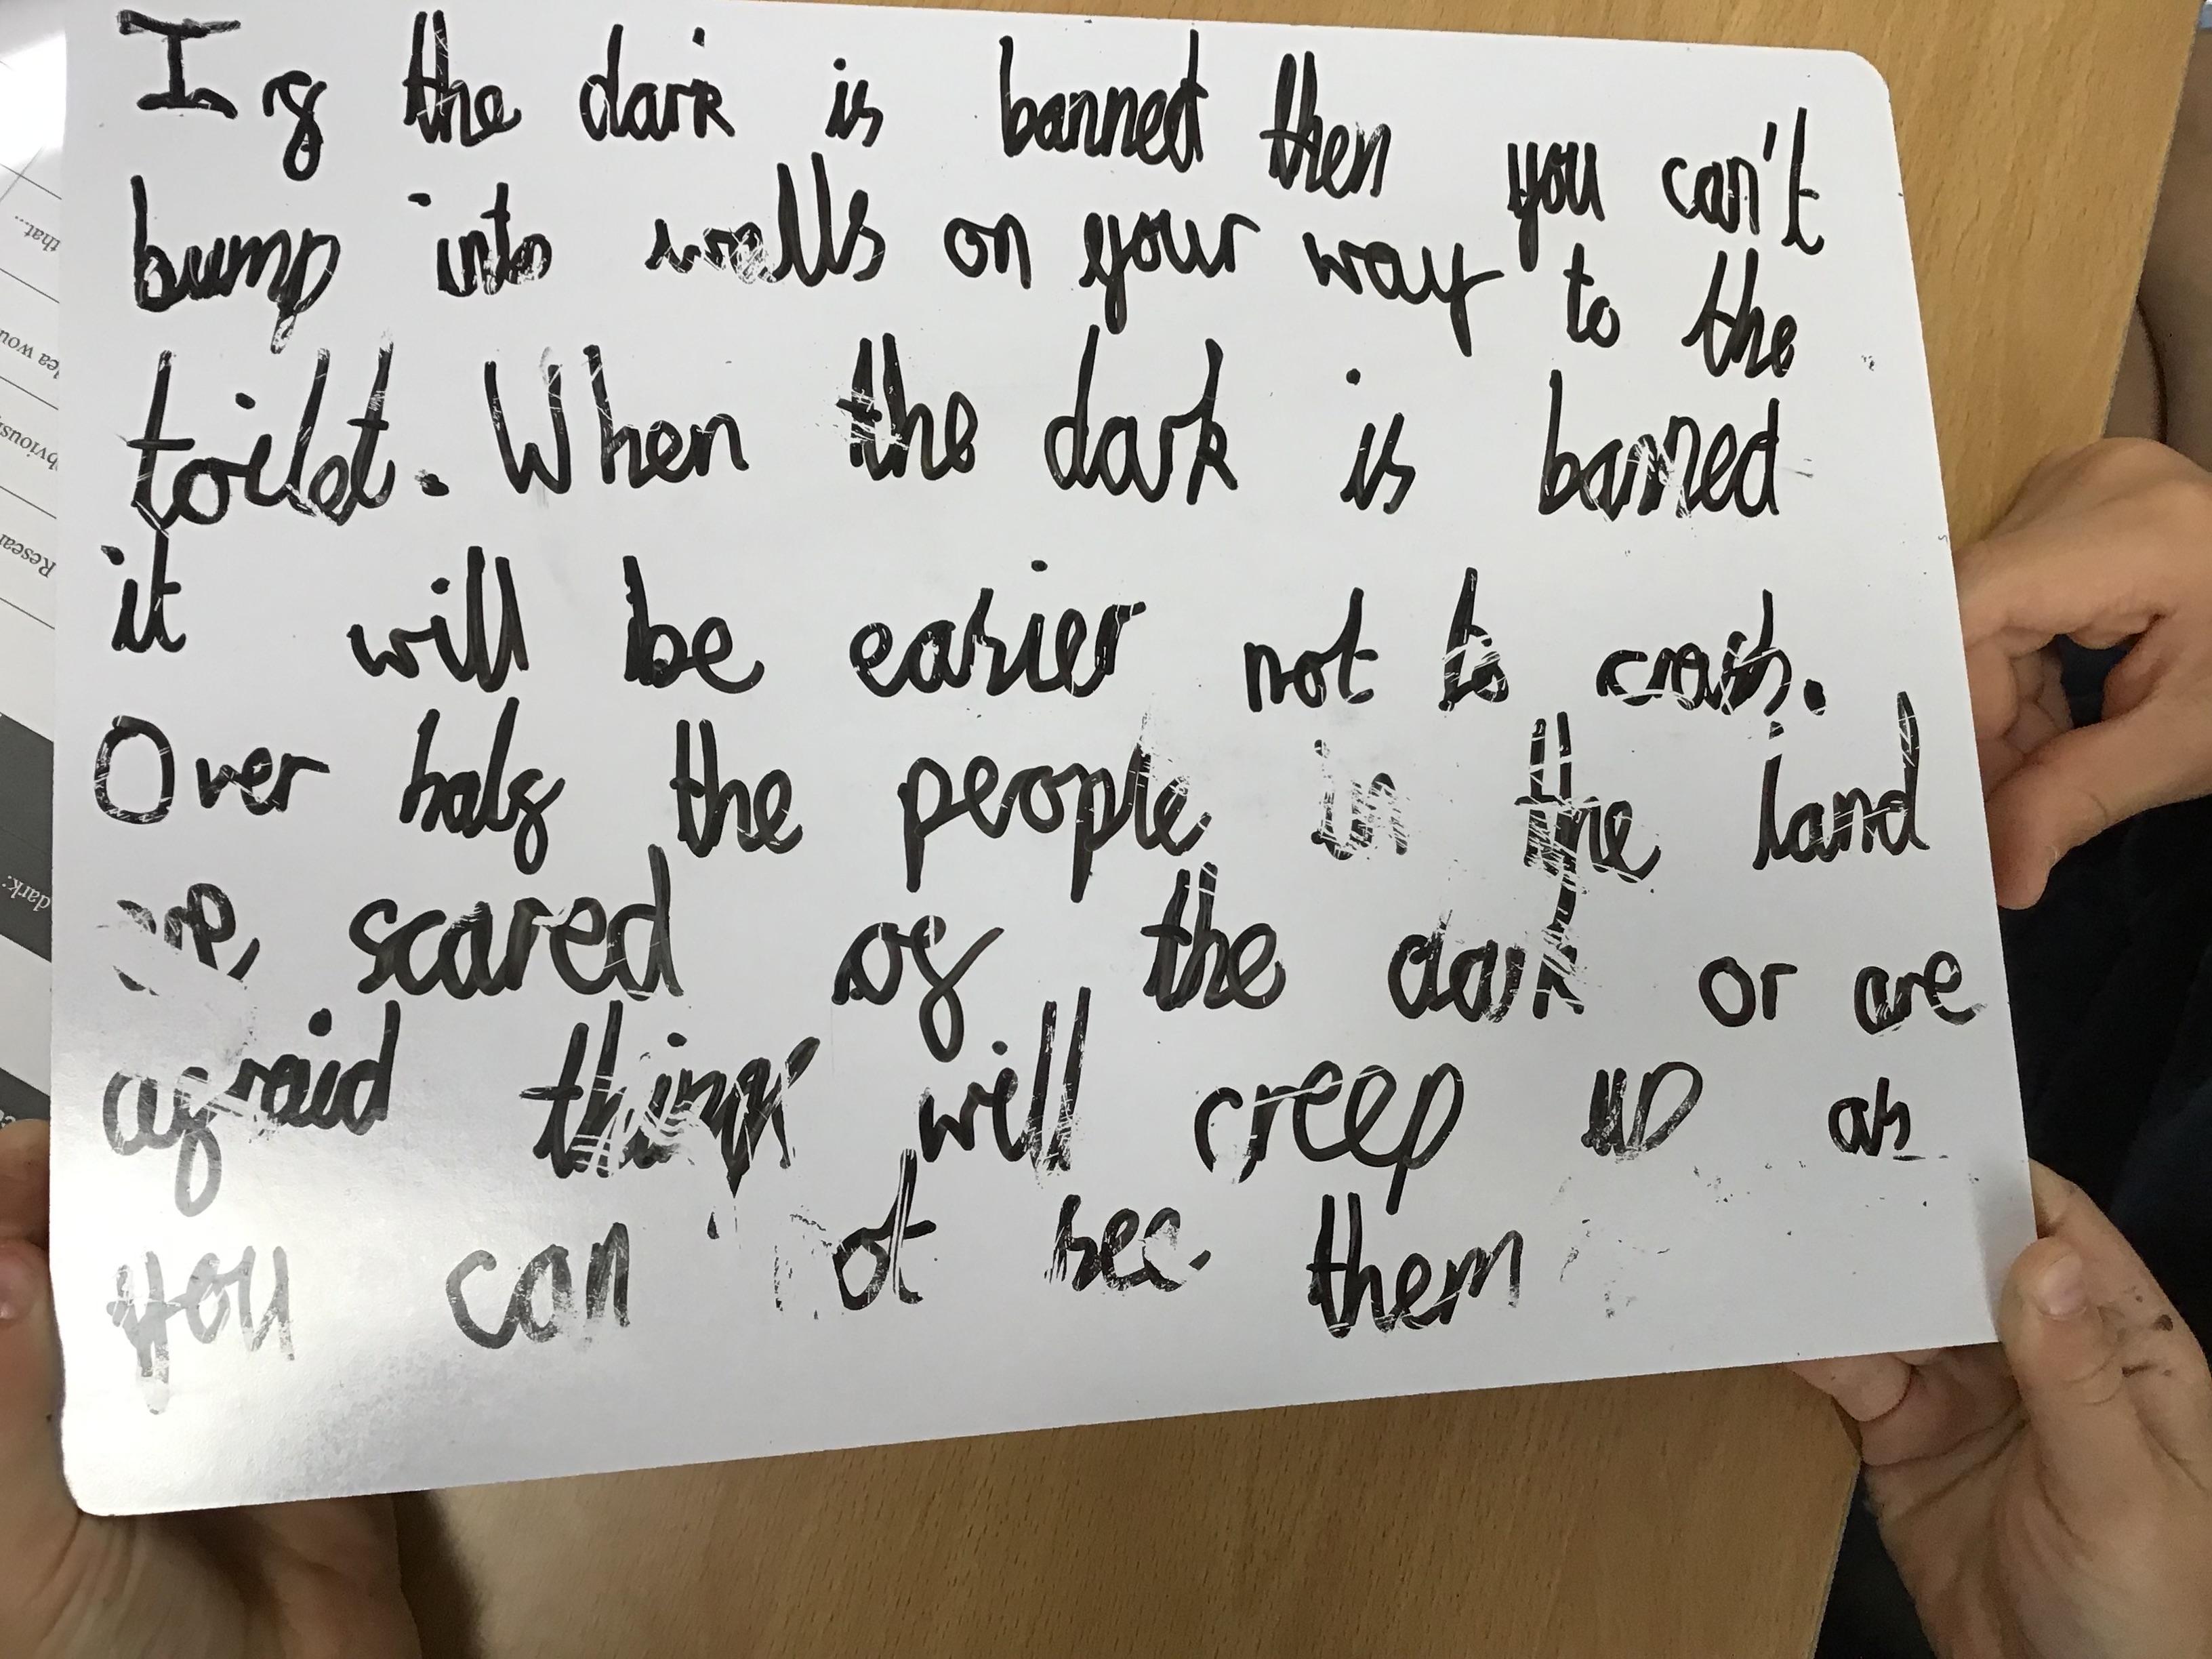 If the dark is banned then you can't
bump into walls on your way to the
toilet. When the dark is banned
it will be easier not to crash.
Over half the people in the land
are scared of the dark or are
afraid things will creep up as
you can not see them
that...
ea wou
bvious
Resear
dark: